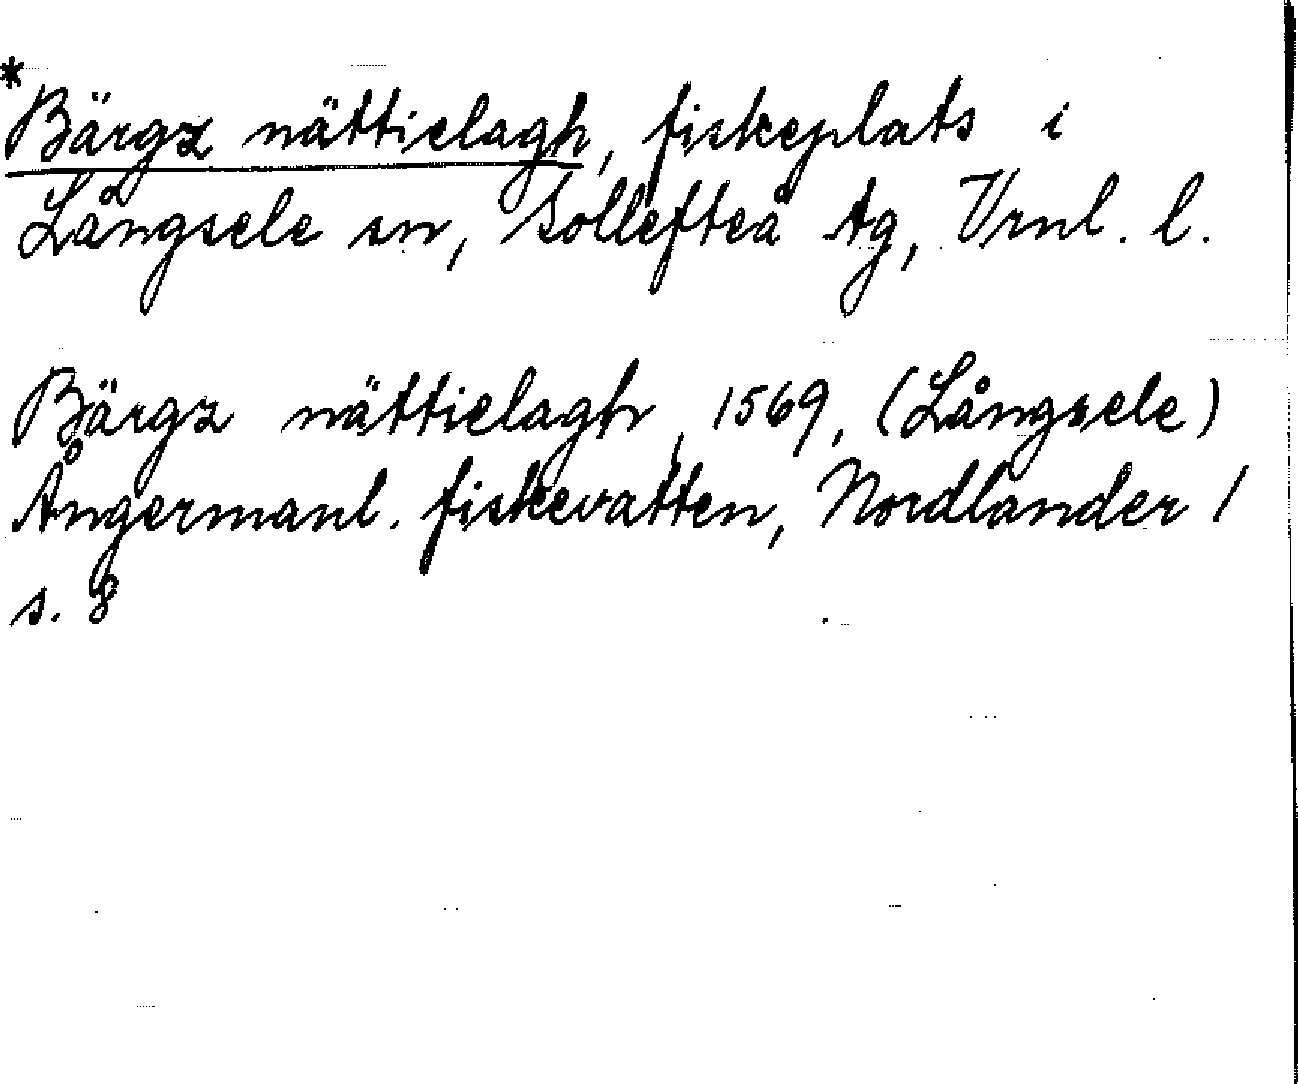 *Bärgz nättielagh, fiskeplats i
Långsele sn, Sollefteå tg, Vrnl. l.
Bärgz nättielagh, 1569, (Långsele)
Ångermanl. fiskevatten, Nordlander 1
s. 8